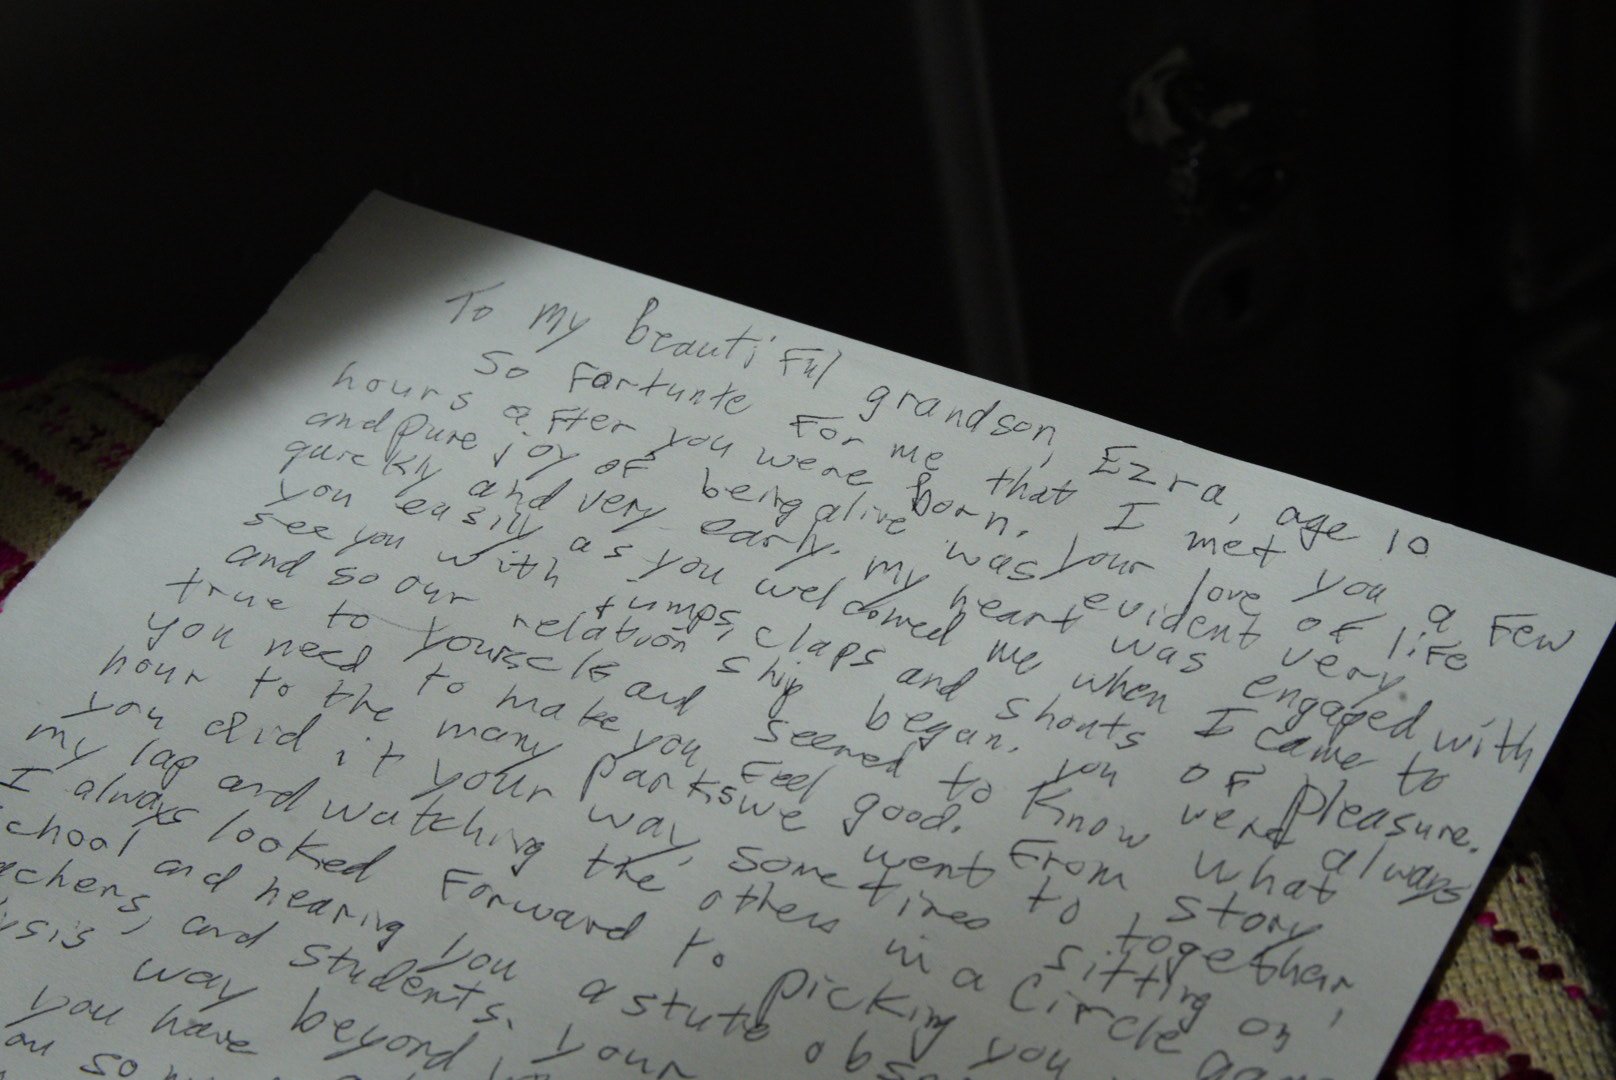 To my beautiful grandson, Ezra, age 10
So Fortunte For me that I met you a Few
hours after you were born. Your love of life
and pure joy of being alive was evident very
quickly and very early. my heart was engaged with
you easily as you welcomed me when I came to
see you with jumps, claps and shouts of pleasure.
and so our relation ship began. You were always
true to yourself and seemed to know what
you need to make you Feel good. From story
hour to the many parks we went to together,
you did it your way, sometimes sitting on
my lap and watching the others in a circle
I always looked Forward to picking you
school and hearing you astute
and students. Your
way beyond
you have
so